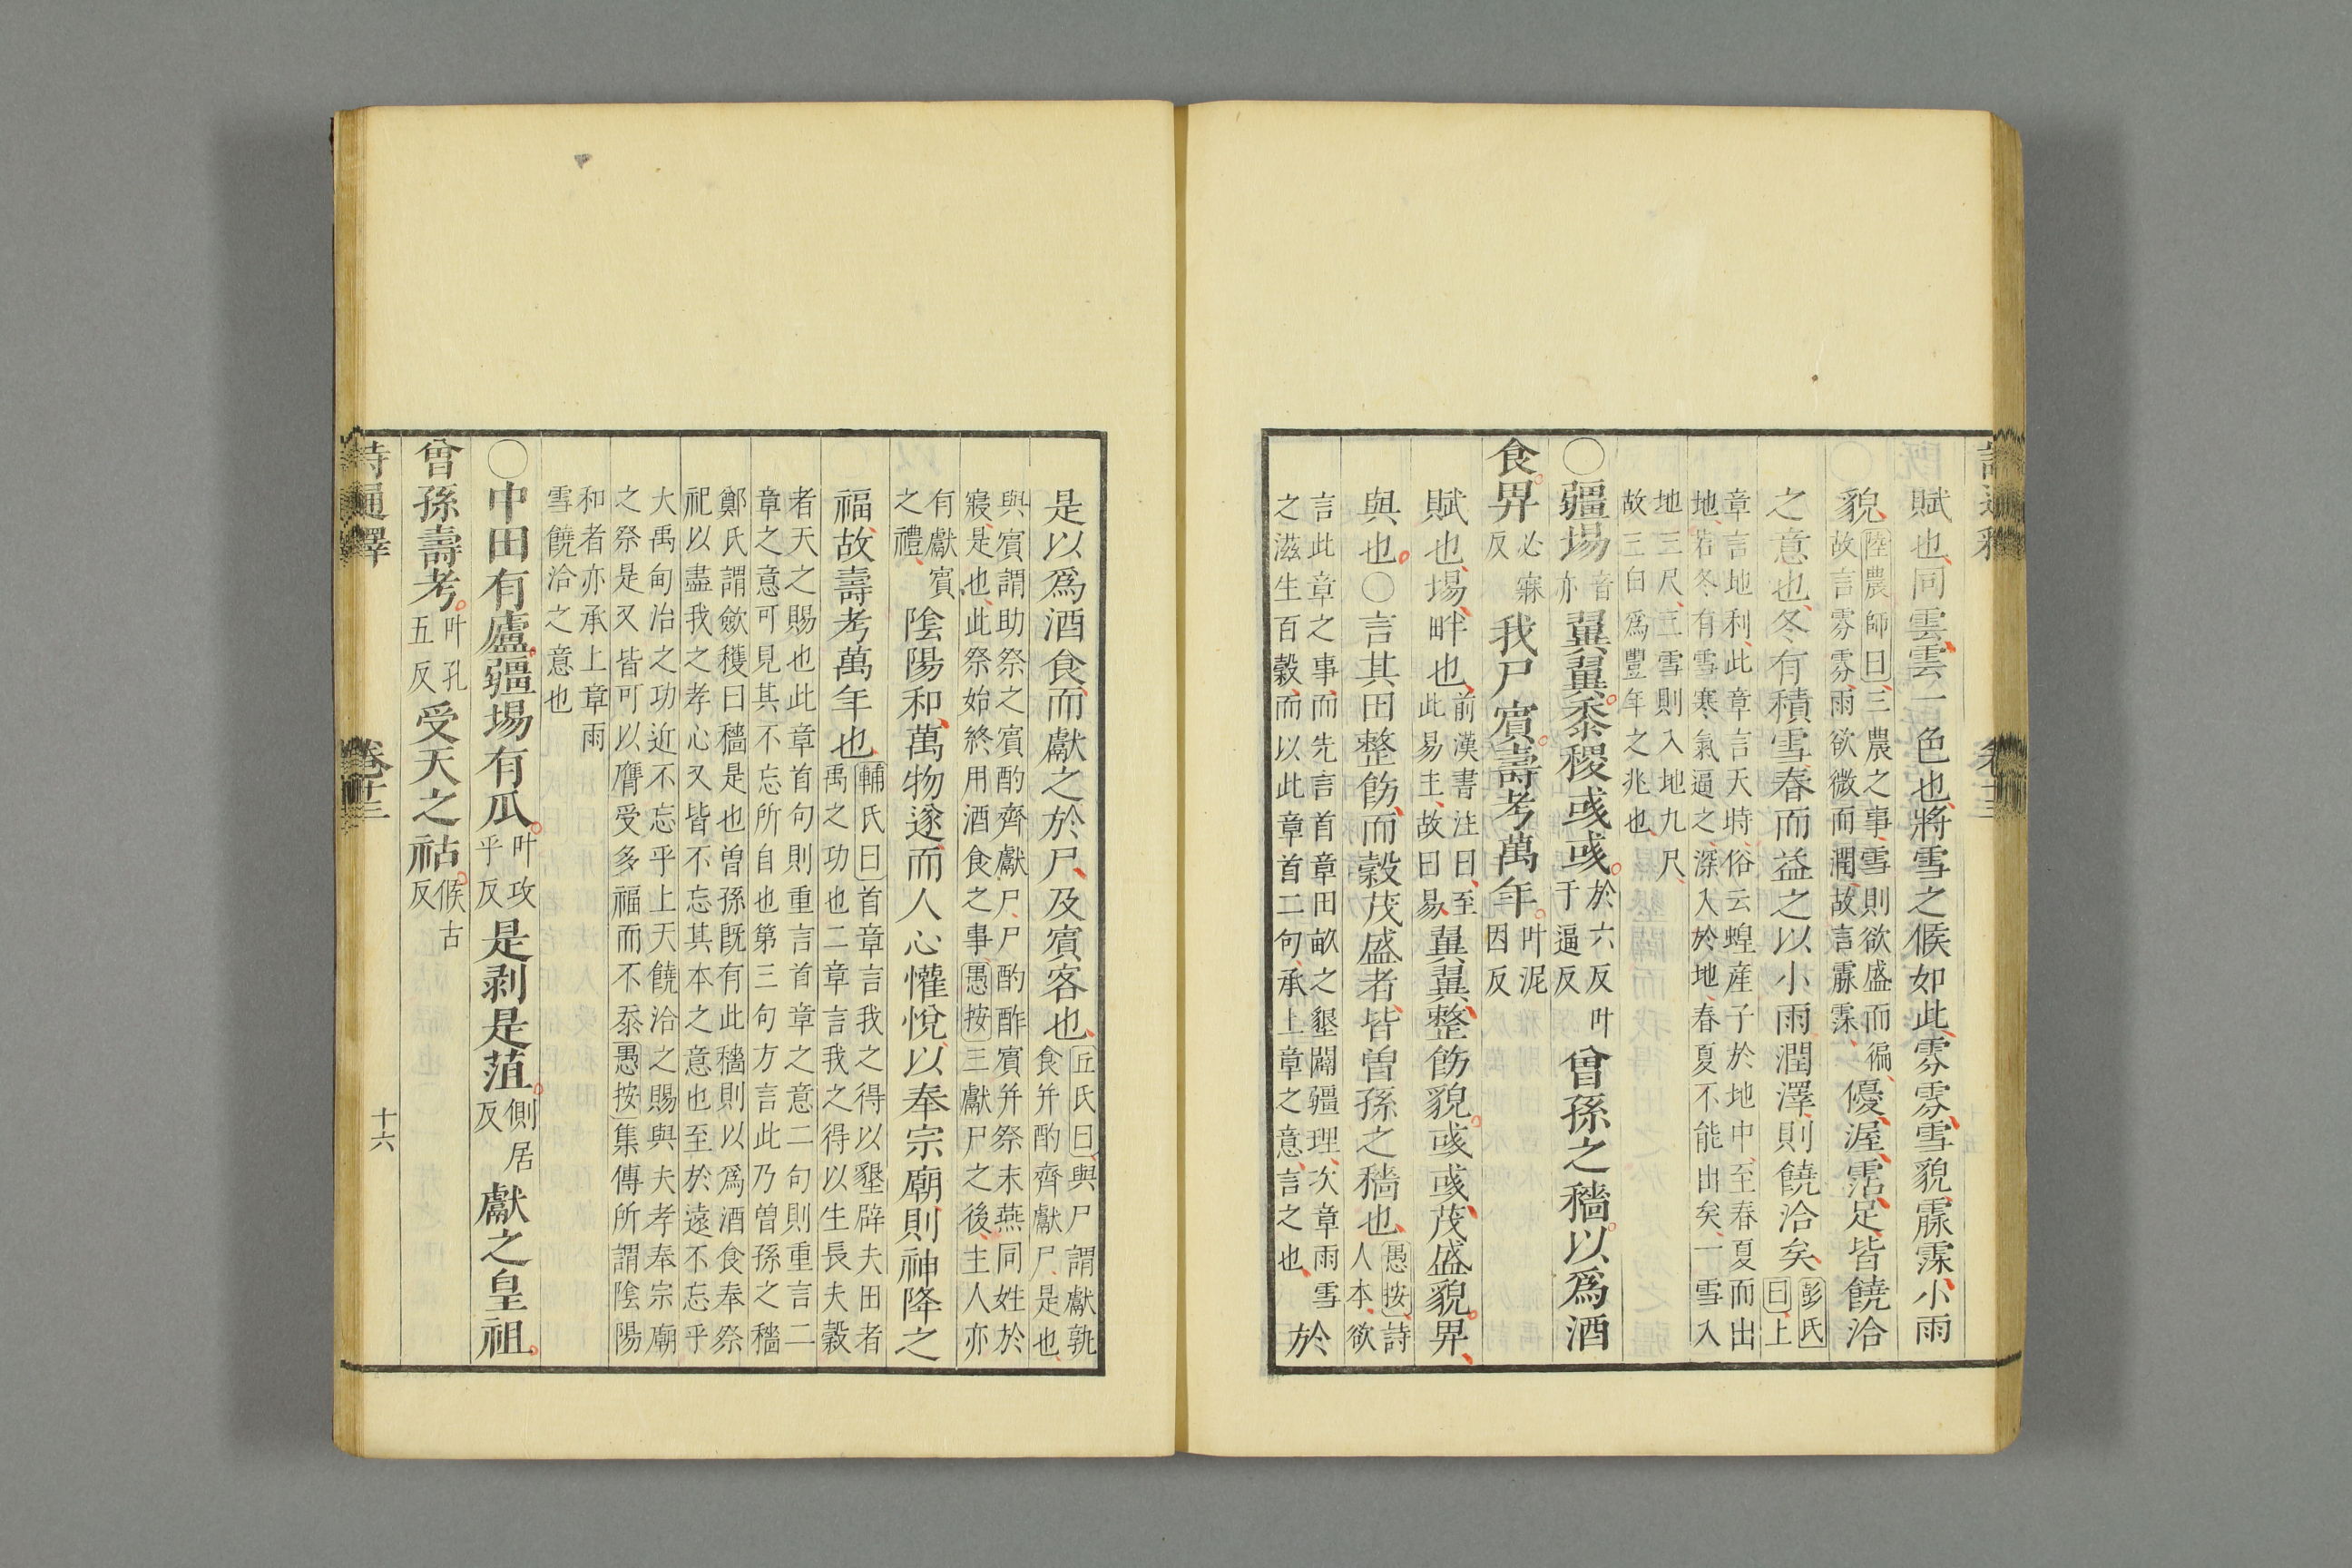 賦也同雲雲一色也將雪之候如此雰雰雪貌霢霂小雨
貌陸農師曰三農之事雪則欲盛而徧
故言雰雰雨欲微而潤故言霢霂優渥霑足皆饒洽
之意也冬有積雪春而益之以小雨潤澤則饒洽矣彭氏
曰上
章言地利此章言天時俗云蝗産子於地中至春夏而出
地若冬有雪寒氣逼之深入於地春夏不能出矣一雪入
地三尺三雪則入地九尺
故三白爲豐年之兆也
○疆埸音
亦翼翼黍稷彧彧於六反叶
于逼反曾孫之穡以爲酒
食畀必寐
反我尸賓壽考萬年叶泥
因反
賦也埸畔也前漢書注曰至
此易主故曰易翼翼整飭貌彧彧茂盛貌畀
與也○言其田整飭而穀茂盛者皆曾孫之穡也愚按詩
人本欲
言此章之事而先言首章田畝之墾闢疆理次章雨雪
之滋生百穀而以此章首二句承上章之意言之也於
是以爲酒食而獻之於尸及賓客也丘氏曰與尸謂獻孰
食并酌齊獻尸是也
與賓謂助祭之賓酌齊獻尸尸酌酢賓并祭末燕同姓於
寢是也此祭始終用酒食之事愚按三獻尸之後主人亦
有獻賓
之禮陰陽和萬物遂而人心懽悅以奉宗廟則神降之
福故壽考萬年也輔氏曰首章言我之得以墾辟夫田者
禹之功也二章言我之得以生長夫穀
者天之賜也此章首句則重言首章之意二句則重言二
章之意可見其不忘所自也第三句方言此乃曾孫之穡
鄭氏謂斂穫曰穡是也曾孫既有此穡則以爲酒食奉祭
祀以盡我之孝心又皆不忘其本之意也至於遠不忘乎
大禹甸治之功近不忘乎上天饒洽之賜與夫孝奉宗廟
之祭是又皆可以膺受多福而不忝愚按集傳所謂陰陽
和者亦承上章雨
雪饒洽之意也
○中田有廬疆埸有瓜叶攻
乎反是剥是菹側居
反獻之皇祖
曾孫壽考叶孔
五反受天之祜候古
反
詩通釋 卷十三 十六